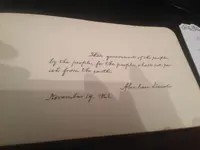 This government of the people
by the people, for the people, shall not per
ish from the earth.
Abraham Lincoln
November 19, 1863.